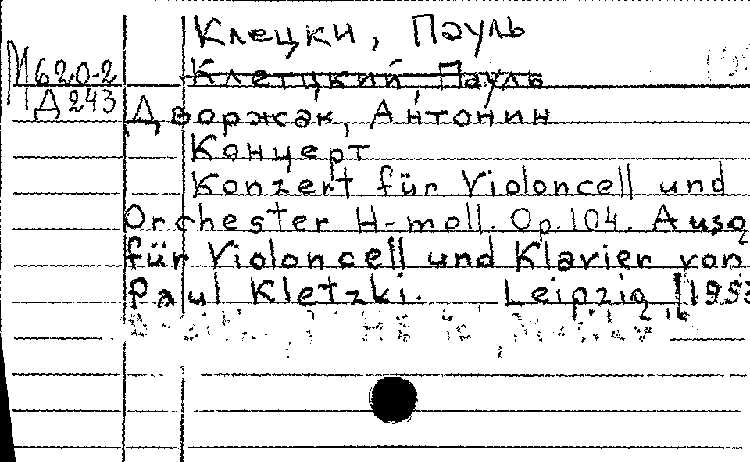 Клецки, Пауль
М620-2 Клетцкий, Пауль
Д243
Дворжак, Антонин
Концерт
Konzert für Violoncell und
Orchester H-moll. Op. 104. Ausg
für Violoncell und Klavier von
Paul Kletzki. Leipzig,